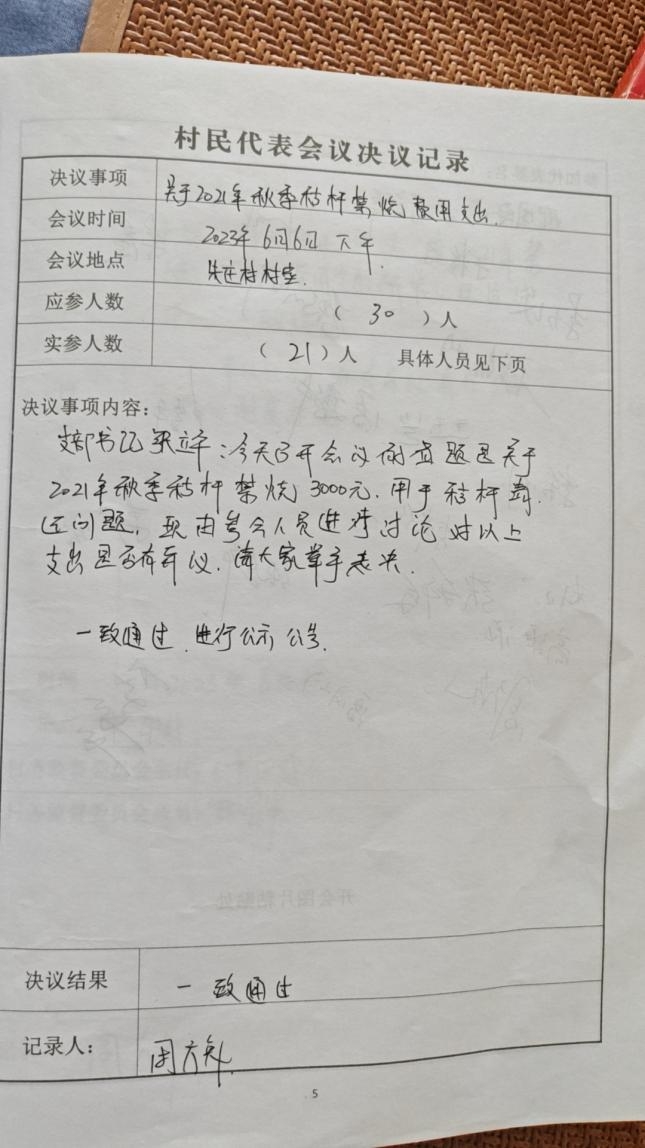 村民代表会议决议记录
决议事项 关于2021年秋季秸杆禁烧费用支出.
会议时间 2023年6月6日 下午.
会议地点 村村室.
应参人数 （ 30 ）人
实参人数 （ 21 ）人 具体人员见下页
决议事项内容：
支部书记 ：今天召开会议的议题是关于
2021年秋季秸杆禁烧3000元.用于秸杆
运问题，现由参会人员进行讨论 对以上
支出是否有异议.请大家举手表决.
一致通过.进行公示公告.
决议结果 一致通过
记录人： 周
5